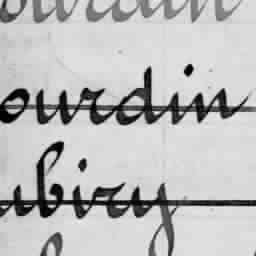 ourdin
ourdin
ubiry